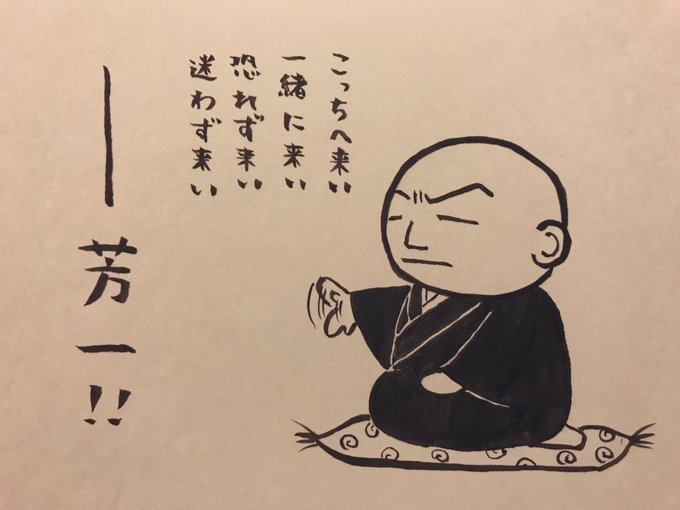 こっちへ来い
一緒に来い
恐れず来い
迷わず来い
――芳一!!